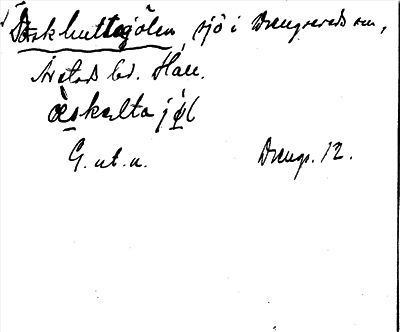 Äskhultagölen sjö i Drengsereds sn,
Årstads hd. Hall.
æ̀skulta jø̨̀l
G. ut. u. Drengs. 12.